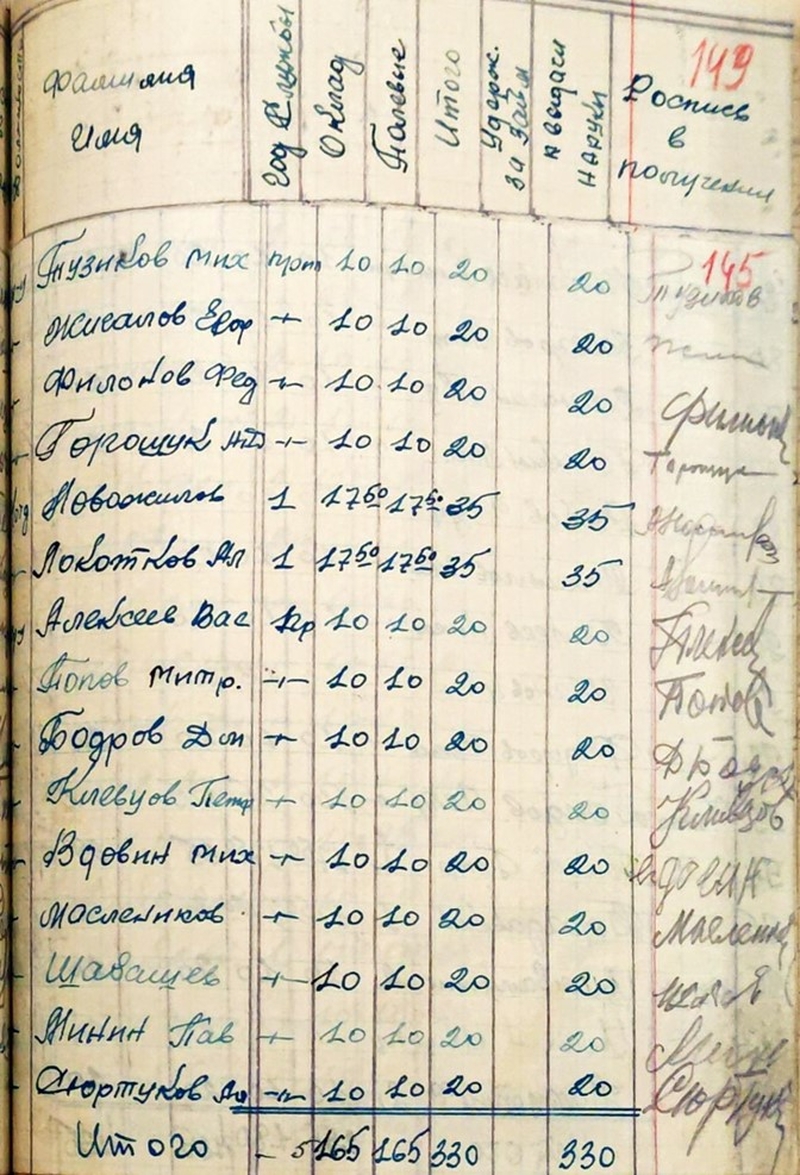 Фамилия Имя Год Службы Оклад Полевые Итого Удерж. за Займ К выдачи НАРУКИ Роспись в получении 149
145
Пузиков Мих 10 10 20 20 Пузиков
Жигалов Егор -"- 10 10 20 20
Филонов Фед -"- 10 10 20 20
Горощук -"- 10 10 20 20
Новожилов 1 17⁵⁰ 17⁵⁰ 35 35
Локотков Ал 1 17⁵⁰ 17⁵⁰ 35 35
Алексеев Вас Кр 10 10 20 20
Попов Митр. -"- 10 10 20 20 Попов
Бодров Дм -"- 10 10 20 20
Клевцов Петр -"- 10 10 20 20 Клевцов
Вдовин Мих -"- 10 10 20 20 Вдовин
Маслеников -"- 10 10 20 20 Маслени
Шабашев -"- 10 10 20 20
Минин Пав -"- 10 10 20 20
Сюртуков -"- 10 10 20 20 Сюртук
Итого 165 165 330 330